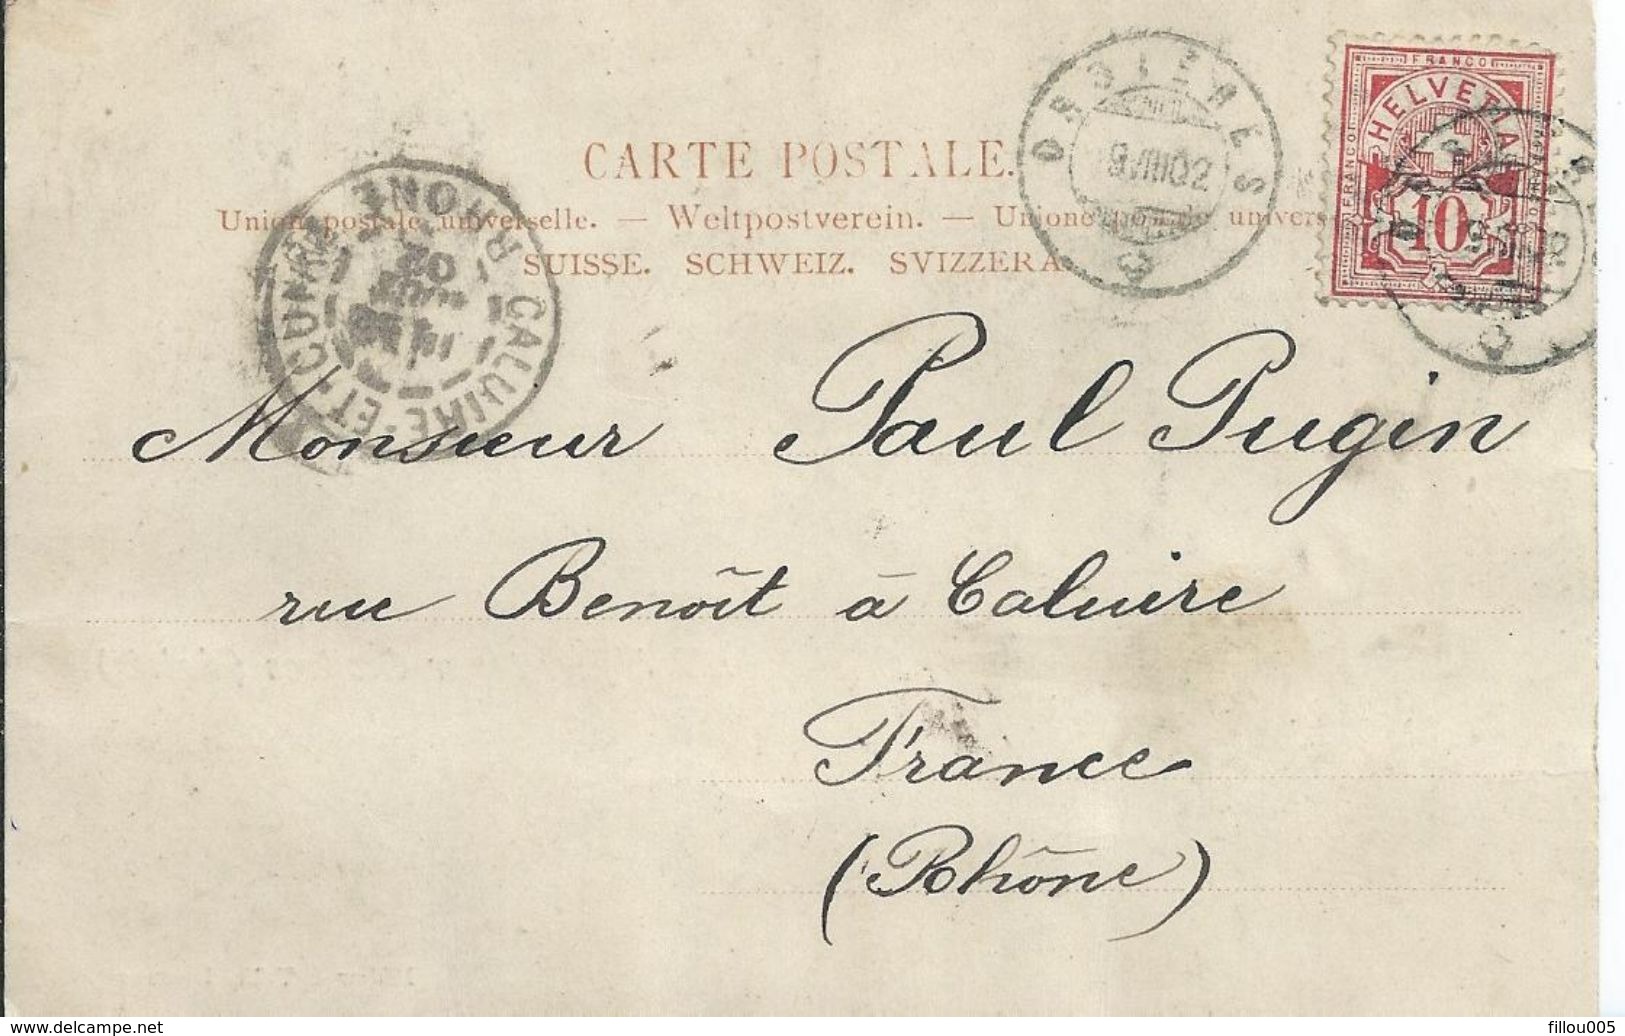 CARTE POSTALE.
Union postale universelle. — Weltpostverein. — Unione postale univers
SUISSE. SCHWEIZ. SVIZZERA
ORSIÈRES
9 VIII 02
FRANCO
FRANCO
HELVETIA
10
RHONE
CALUIRE-ET-CUIRE
02
Monsieur Paul Pugin
rue Benoît à Caluire
France
(Rhône)
www.delcampe.net
fillou005